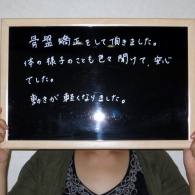 骨盤矯正をして頂きました。
体の様子のことも色々聞けて、安心
でした。
動きが軽くなりました。